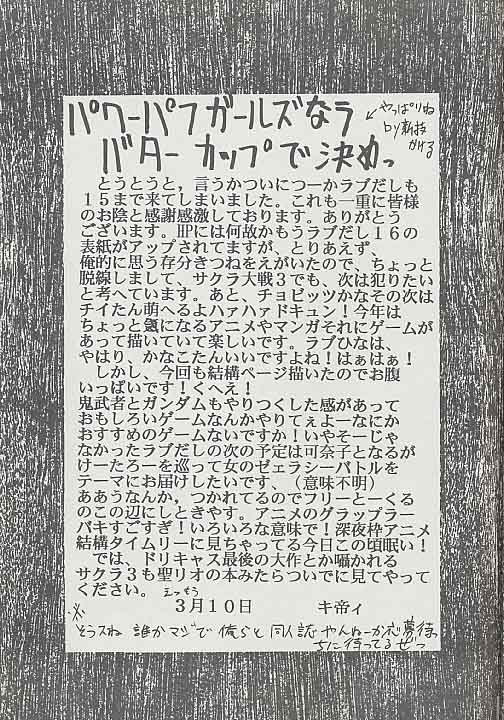 パワーパフガールズなラ
バターカップで決めっ
やっぱりね
とうとうと，言うかついにつーかラブだしも
１５まで来てしまいました。これも一重に皆様
のお陰と感謝感激しております。ありがとう
ございます。HPには何故かもうラブだし１６の
表紙がアップされてますが、とりあえず、
俺的に思う存分きつねをえがいたので、ちょっと
脱線しまして、サクラ大戦３でも、次は犯りたい
と考へています。あと、チョビッツかなその次は
チイたん萌へるよハァハァドキュン！今年は
ちょっと気になるアニメやマンガそれにゲームが
あって描いていて楽しいです。ラブひなは、
やはり、かなこたんいいですよね！はぁはぁ！
しかし、今回も結構ページ描いたのでお腹
いっぱいです！くへえ！
鬼武者とガンダムもやりつくした感があって
おもしろいゲームなんかやりてぇよーなにか
おすすめのゲームないですか！いやそーじゃ
なかったラブだしの次の予定は可奈子となるが
けーたろーを巡って女のゼェラシーバトルを
テーマにお届けしたいです、（意味不明）
ああうなんか，つかれてるのでフリーとーくる
のこの辺にしときやす。アニメのグラップラー
バキすごすぎ！いろいろな意味で！深夜枠アニメ
結構タイムリーに見ちゃってる今日この頃眠い！
では、ドリキャス最後の大作とか囁かれる
サクラ３も聖リオの本みたらついでに見てやって
ください。
３月１０日　　　キ帝ィ
※
そうスね 誰かマジで 俺らと 同人誌 やんねーか応募待っ
ちに待ってるぜっ